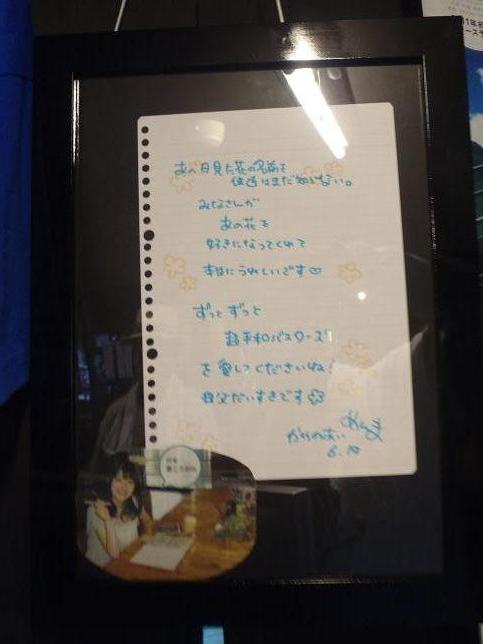 あの日見た花の名前を
僕達はまだ知らない。
みなさんが
あの花を
好きになってくれて
本当にうれしいです♡
ずっとずっと
超平和バスターズ
を愛してくださいね!
秩父だいすきです
めんま
かやのあい